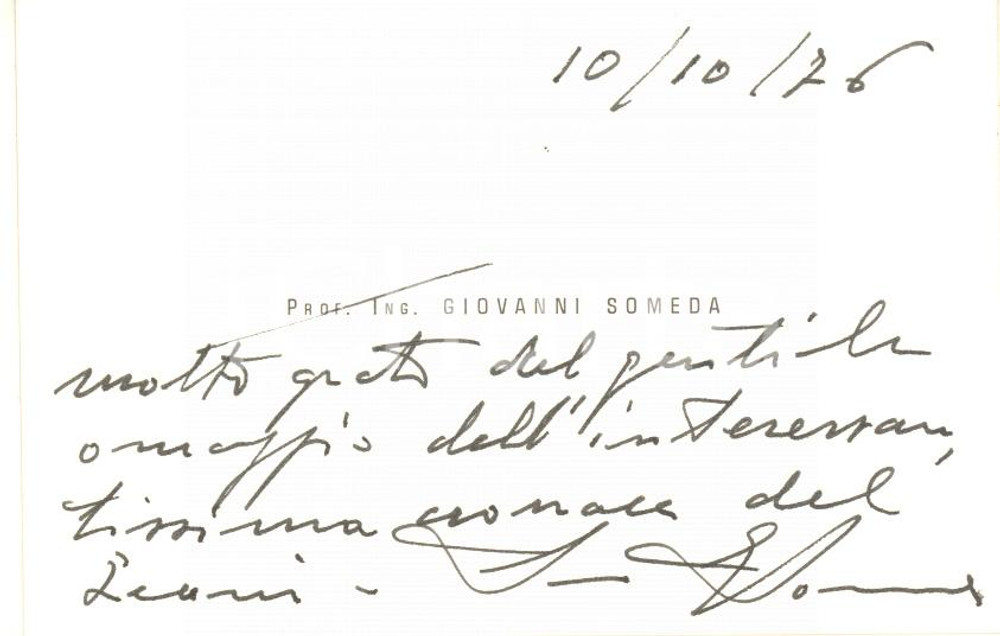 10/10/76
PROF. ING. GIOVANNI SOMEDA
molto grato del gentile
omaggio dell'interessan,
tissima cronaca del